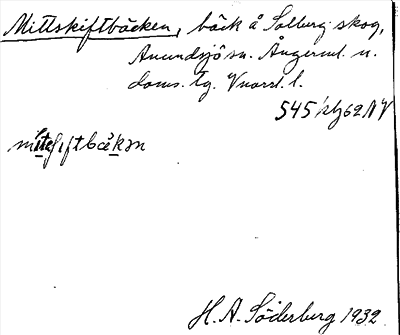 Mittskiftbäcken, bäck å Solberg skog,
Anundsjö sn. Ångerml. n.
doms. tg. Vnorrl. l.
545
mit
H. A. Söderberg 1932